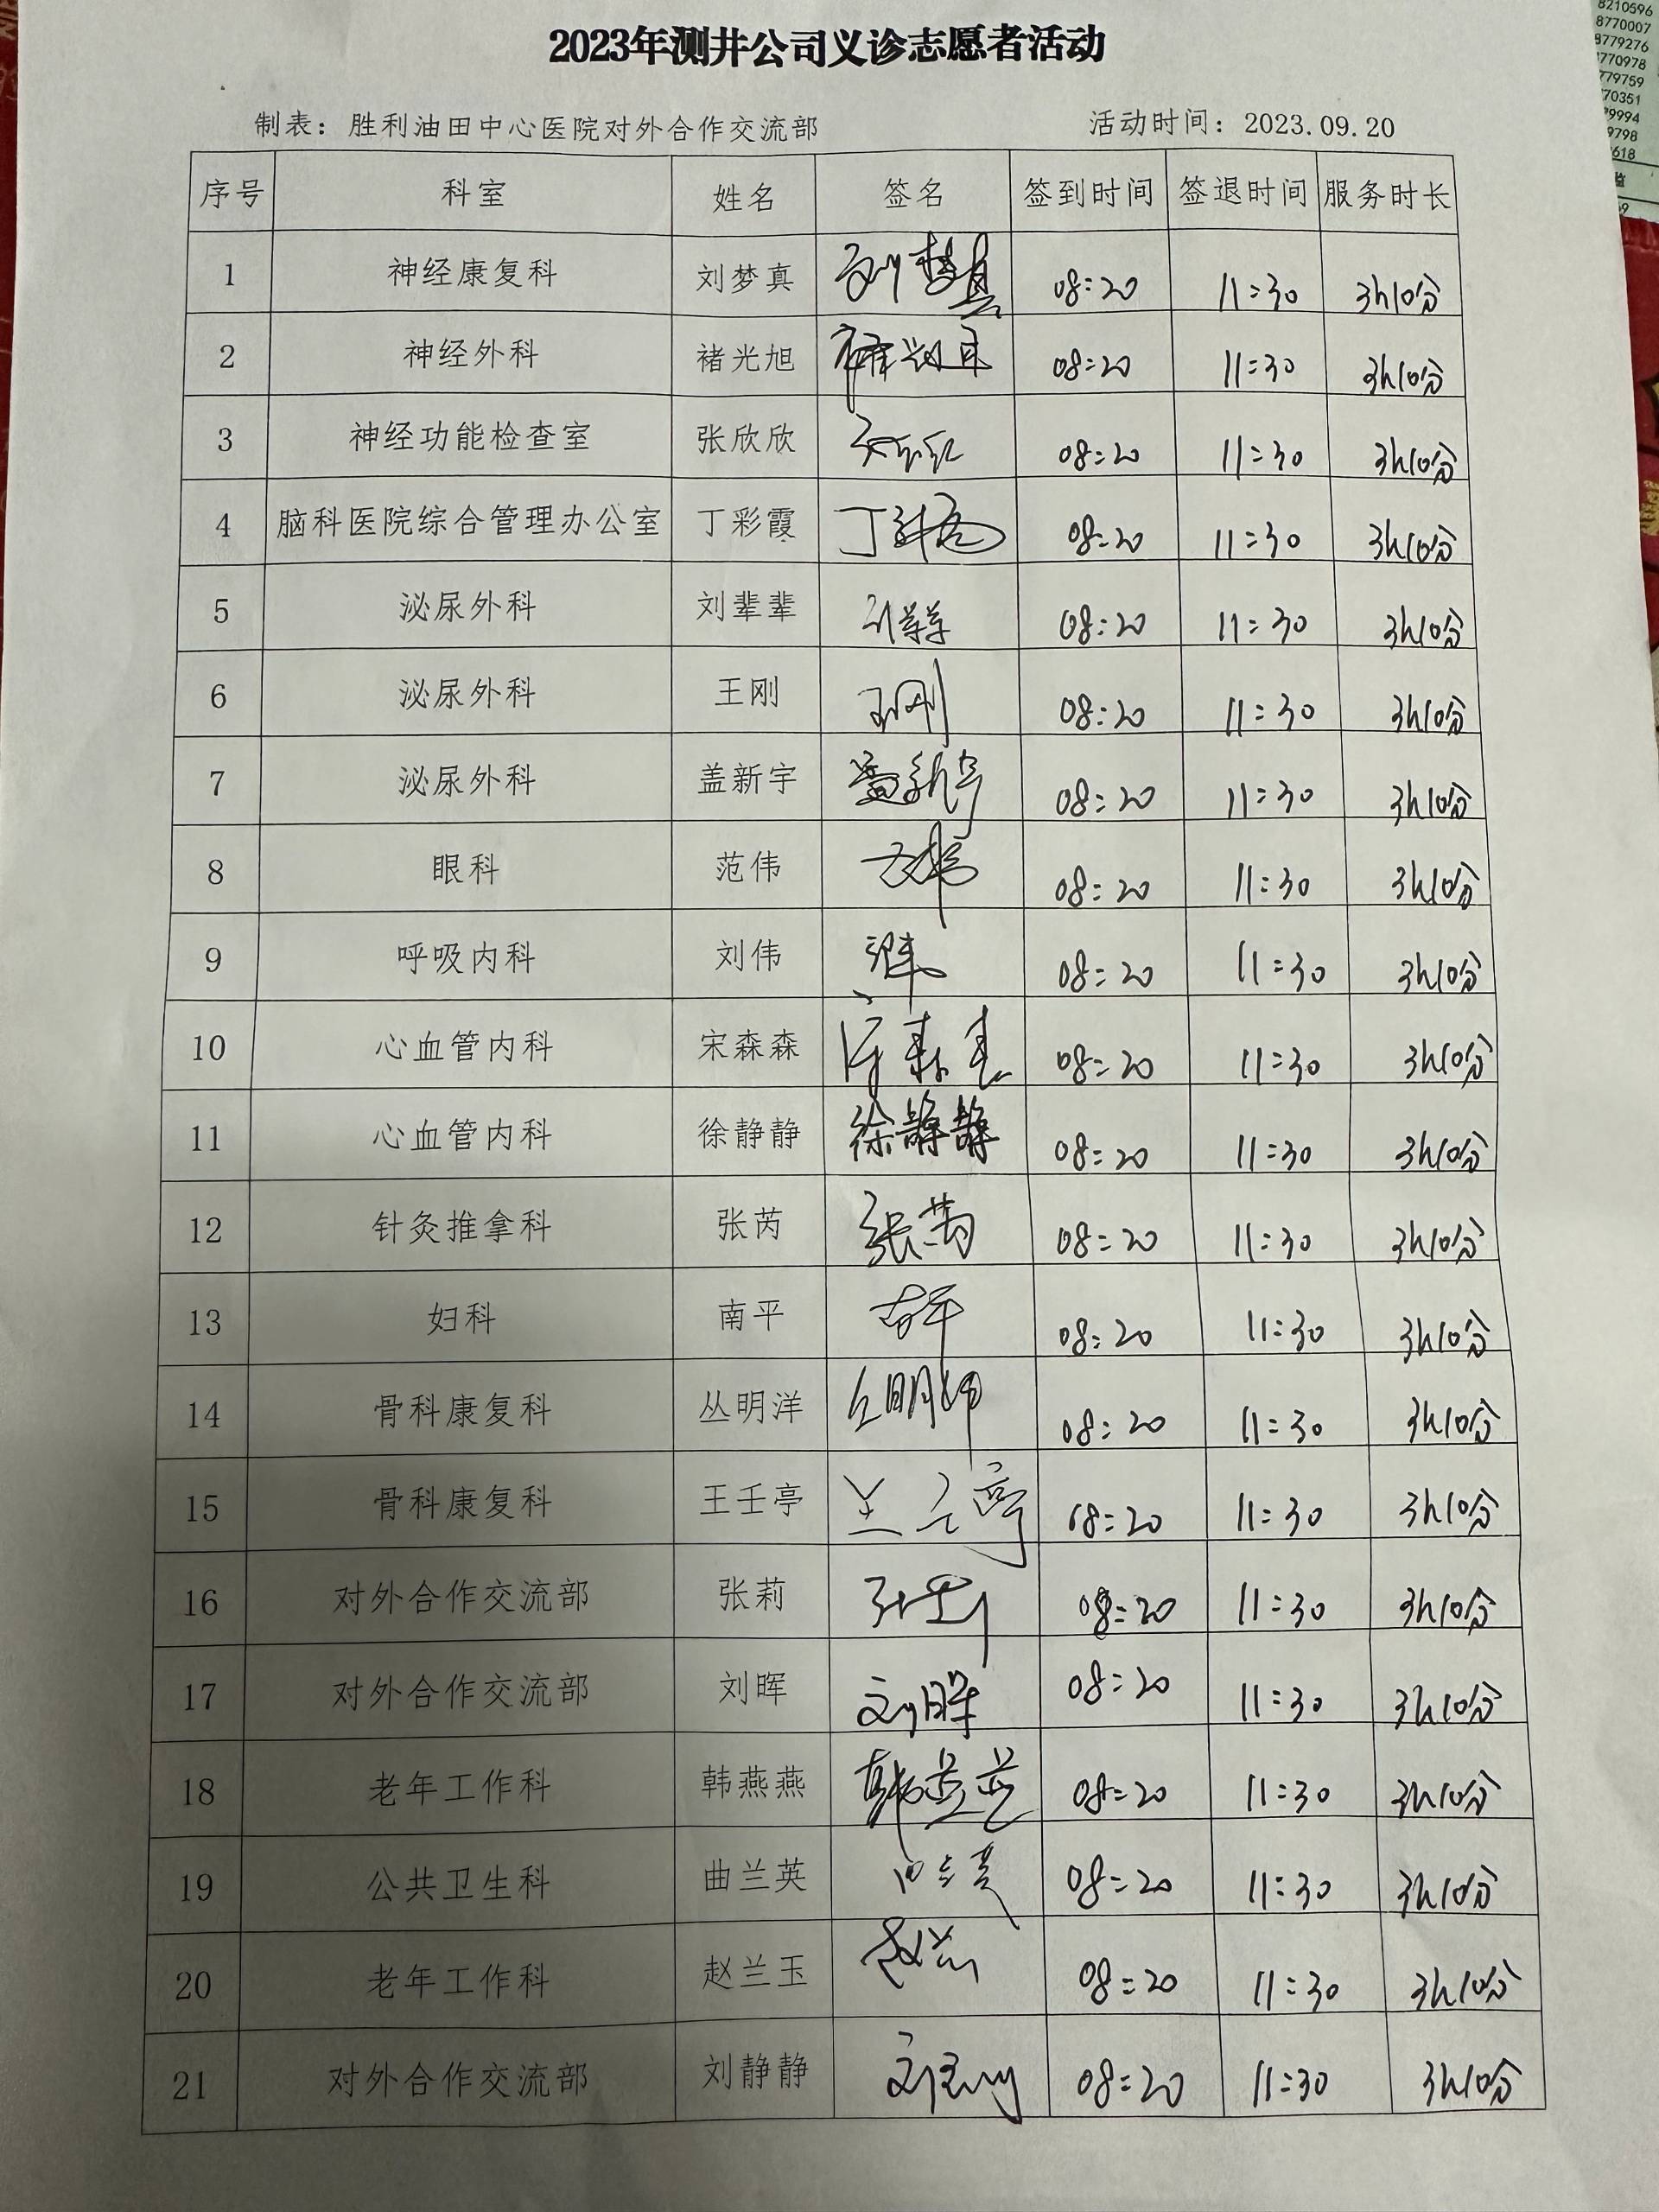 2023年测井公司义诊志愿者活动
制表：胜利油田中心医院对外合作交流部 活动时间：2023.09.20
序号 科室 姓名 签名 签到时间 签退时间 服务时长
1 神经康复科 刘梦真 刘梦真 08:20 11:30 3h10分
2 神经外科 褚光旭 08:20 11:30 3h10分
3 神经功能检查室 张欣欣 08:20 11:30 3h10分
4 脑科医院综合管理办公室 丁彩霞 丁彩霞 08:20 11:30 3h10分
5 泌尿外科 刘辈辈 08:20 11:30 3h10分
6 泌尿外科 王刚 王刚 08:20 11:30 3h10分
7 泌尿外科 盖新宇 盖新宇 08:20 11:30 3h10分
8 眼科 范伟 08:20 11:30 3h10分
9 呼吸内科 刘伟 08:20 11:30 3h10分
10 心血管内科 宋森森 08:20 11:30 3h10分
11 心血管内科 徐静静 徐静静 08:20 11:30 3h10分
12 针灸推拿科 张芮 张芮 08:20 11:30 3h10分
13 妇科 南平 南平 08:20 11:30 3h10分
14 骨科康复科 丛明洋 08:20 11:30 3h10分
15 骨科康复科 王壬亭 王壬亭 08:20 11:30 3h10分
16 对外合作交流部 张莉 08:20 11:30 3h10分
17 对外合作交流部 刘晖 刘晖 08:20 11:30 3h10分
18 老年工作科 韩燕燕 韩燕燕 08:20 11:30 3h10分
19 公共卫生科 曲兰英 曲兰英 08:20 11:30 3h10分
20 老年工作科 赵兰玉 08:20 11:30 3h10分
21 对外合作交流部 刘静静 08:20 11:30 3h10分
8210596
8770007
8779276
770978
779759
70351
9994
9798
618